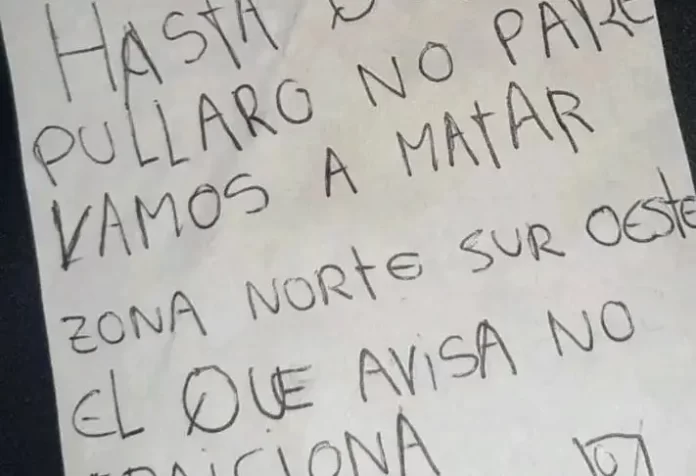 HASTA Q
PULLARO NO PARE
VAMOS A MATAR
ZONA NORTE SUR OESTE
EL QUE AVISA NO